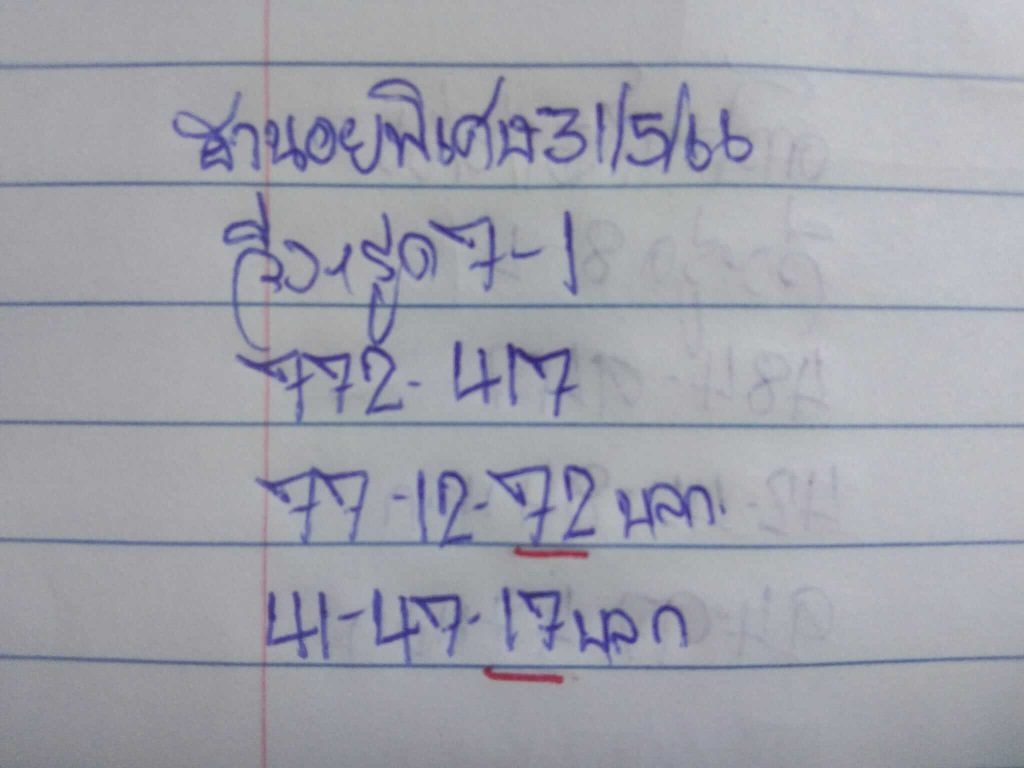 ฮานอยพิเศษ31/5/66
วิ่ง.รูด7-1
772-417
77-12-72 บลก.
41-47-17บลก